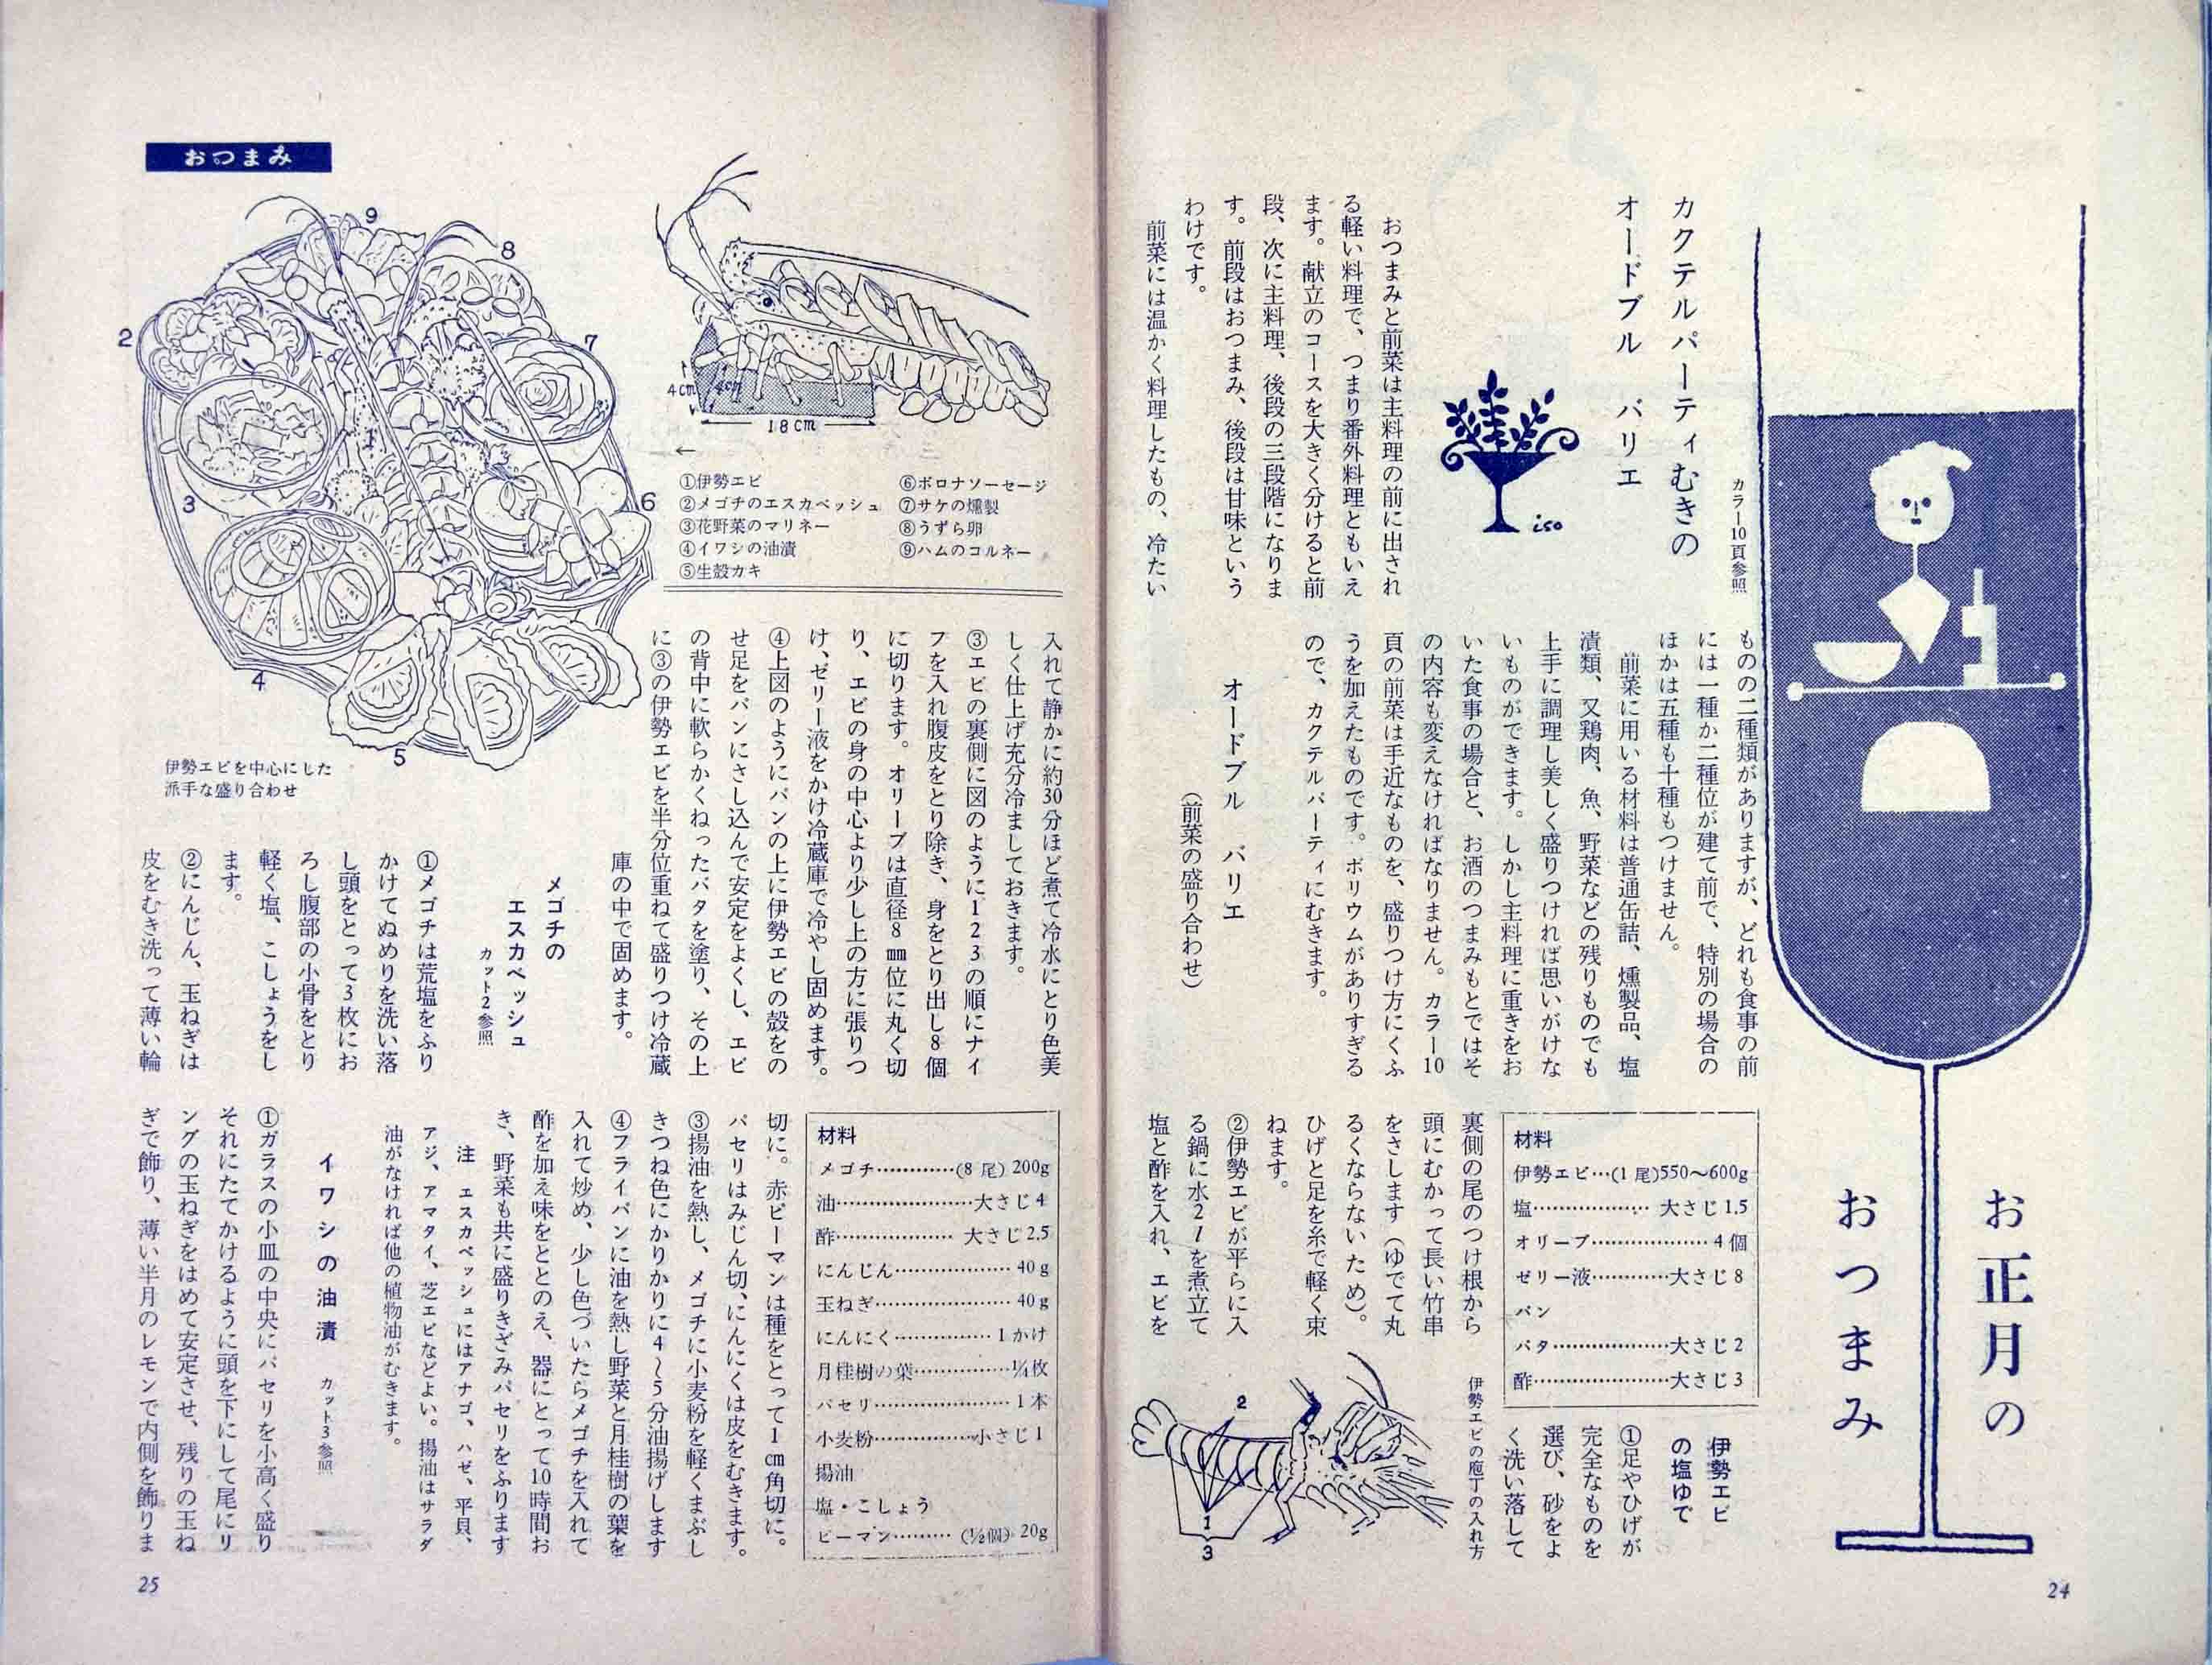 お正月の
おつまみ
カラー10頁参照
カクテルパーティむきの
オードブル　バリエ
iso
おつまみと前菜は主料理の前に出され
る軽い料理で、つまり番外料理ともいえ
ます。献立のコースを大きく分けると前
段、次に主料理、後段の三段階になりま
す。前段はおつまみ、後段は甘味という
わけです。
前菜には温かく料理したもの、冷たい
ものの二種類がありますが、どれも食事の前
には一種か二種位が建て前で、特別の場合の
ほかは五種も十種もつけません。
前菜に用いる材料は普通缶詰、燻製品、塩
漬類、又鶏肉、魚、野菜などの残りものでも
上手に調理し美しく盛りつければ思いがけな
いものができます。しかし主料理に重きをお
いた食事の場合と、お酒のつまみもとではそ
の内容も変えなければなりません。カラー10
頁の前菜は手近なものを、盛りつけ方にくふ
うを加えたものです。ボリウムがありすぎる
ので、カクテルパーティにむきます。
オードブル　バリエ
（前菜の盛り合わせ）
材料
伊勢エビ…(1尾)550〜600g
塩………………大さじ1.5
オリーブ………………4個
ゼリー液…………大さじ8
パン
バタ………………大さじ2
酢…………………大さじ3
伊勢エビ
の塩ゆで
①足やひげが
完全なものを
選び、砂をよ
く洗い落して
裏側の尾のつけ根から
頭にむかって長い竹串
をさします（ゆでて丸
るくならないため）。
ひげと足を糸で軽く束
ねます。
②伊勢エビが平らに入
る鍋に水2lを煮立て
塩と酢を入れ、エビを
伊勢エビの庖丁の入れ方
2
1
3
24
おつまみ
4cm
4cm
18cm
←
①伊勢エビ
②メゴチのエスカベッシュ
③花野菜のマリネー
④イワシの油漬
⑤生殻カキ
⑥ボロナソーセージ
⑦サケの燻製
⑧うずら卵
⑨ハムのコルネー
9
8
7
2
1
3
6
4
5
伊勢エビを中心にした
派手な盛り合わせ
入れて静かに約30分ほど煮て冷水にとり色美
しく仕上げ充分冷ましておきます。
③エビの裏側に図のように123の順にナイ
フを入れ腹皮をとり除き、身をとり出し8個
に切ります。オリーブは直径8㎜位に丸く切
り、エビの身の中心より少し上の方に張りつ
け、ゼリー液をかけ冷蔵庫で冷やし固めます。
④上図のようにパンの上に伊勢エビの殻をの
せ足をパンにさし込んで安定をよくし、エビ
の背中に軟らかくねったバタを塗り、その上
に③の伊勢エビを半分位重ねて盛りつけ冷蔵
庫の中で固めます。
メゴチの
エスカベッシュ
カット2参照
①メゴチは荒塩をふり
かけてぬめりを洗い落
し頭をとって3枚にお
ろし腹部の小骨をとり
軽く塩、こしょうをし
ます。
②にんじん、玉ねぎは
皮をむき洗って薄い輪
材料
メゴチ…………(8尾) 200g
油…………………大さじ4
酢………………大さじ2.5
にんじん………………40g
玉ねぎ…………………40g
にんにく……………1かけ
月桂樹の葉……………¼枚
パセリ…………………1本
小麦粉……………小さじ1
揚油
塩・こしょう
ピーマン………(½個) 20g
切に。赤ピーマンは種をとって1㎝角切に。
パセリはみじん切、にんにくは皮をむきます。
③揚油を熱し、メゴチに小麦粉を軽くまぶし
きつね色にかりかりに4〜5分油揚げします
④フライパンに油を熱し野菜と月桂樹の葉を
入れて炒め、少し色づいたらメゴチを入れて
酢を加え味をととのえ、器にとって10時間お
き、野菜も共に盛りきざみパセリをふります
注　エスカベッシュにはアナゴ、ハゼ、平貝、
アジ、アマタイ、芝エビなどよい。揚油はサラダ
油がなければ他の植物油がむきます。
イワシの油漬　カット3参照
①ガラスの小皿の中央にパセリを小高く盛り
それにたてかけるように頭を下にして尾にリ
ングの玉ねぎをはめて安定させ、残りの玉ね
ぎで飾り、薄い半月のレモンで内側を飾りま
25